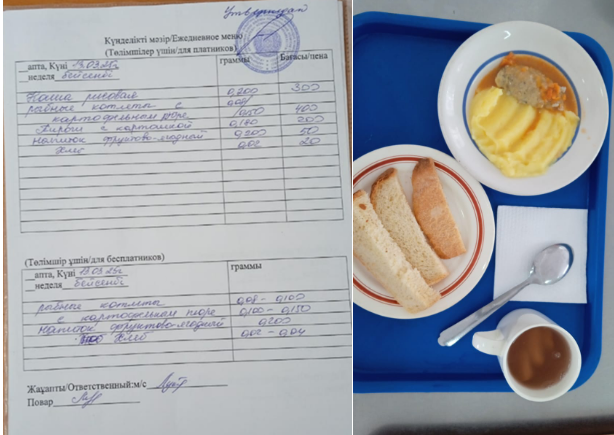 Утверждаю
Күнделікті мәзір/Ежедневное меню
(Төлімшілер үшін/для платников)
__апта, Күні 13.03.25г граммы Бағасы/цена
__неделя бейсенбі
Каша рисовая 0,200 300
рыбные котлеты с 0,08/
картофельным пюре 0,150 400
Пирожки с картошкой 0,140 200
Напиток фруктово-ягодный 0,200 50
Хлеб 0,02 20
(Төлімшір үшін/для бесплатников)
__апта, Күні 13.03.25г граммы
__неделя бейсенбі
рыбные котлеты 0,08 - 0,100
с картофельным пюре 0,100 - 0,150
Напиток фруктово-ягодный 0,200
Хлеб 0,02 - 0,04
Жауапты/Ответственный:м/с
Повар